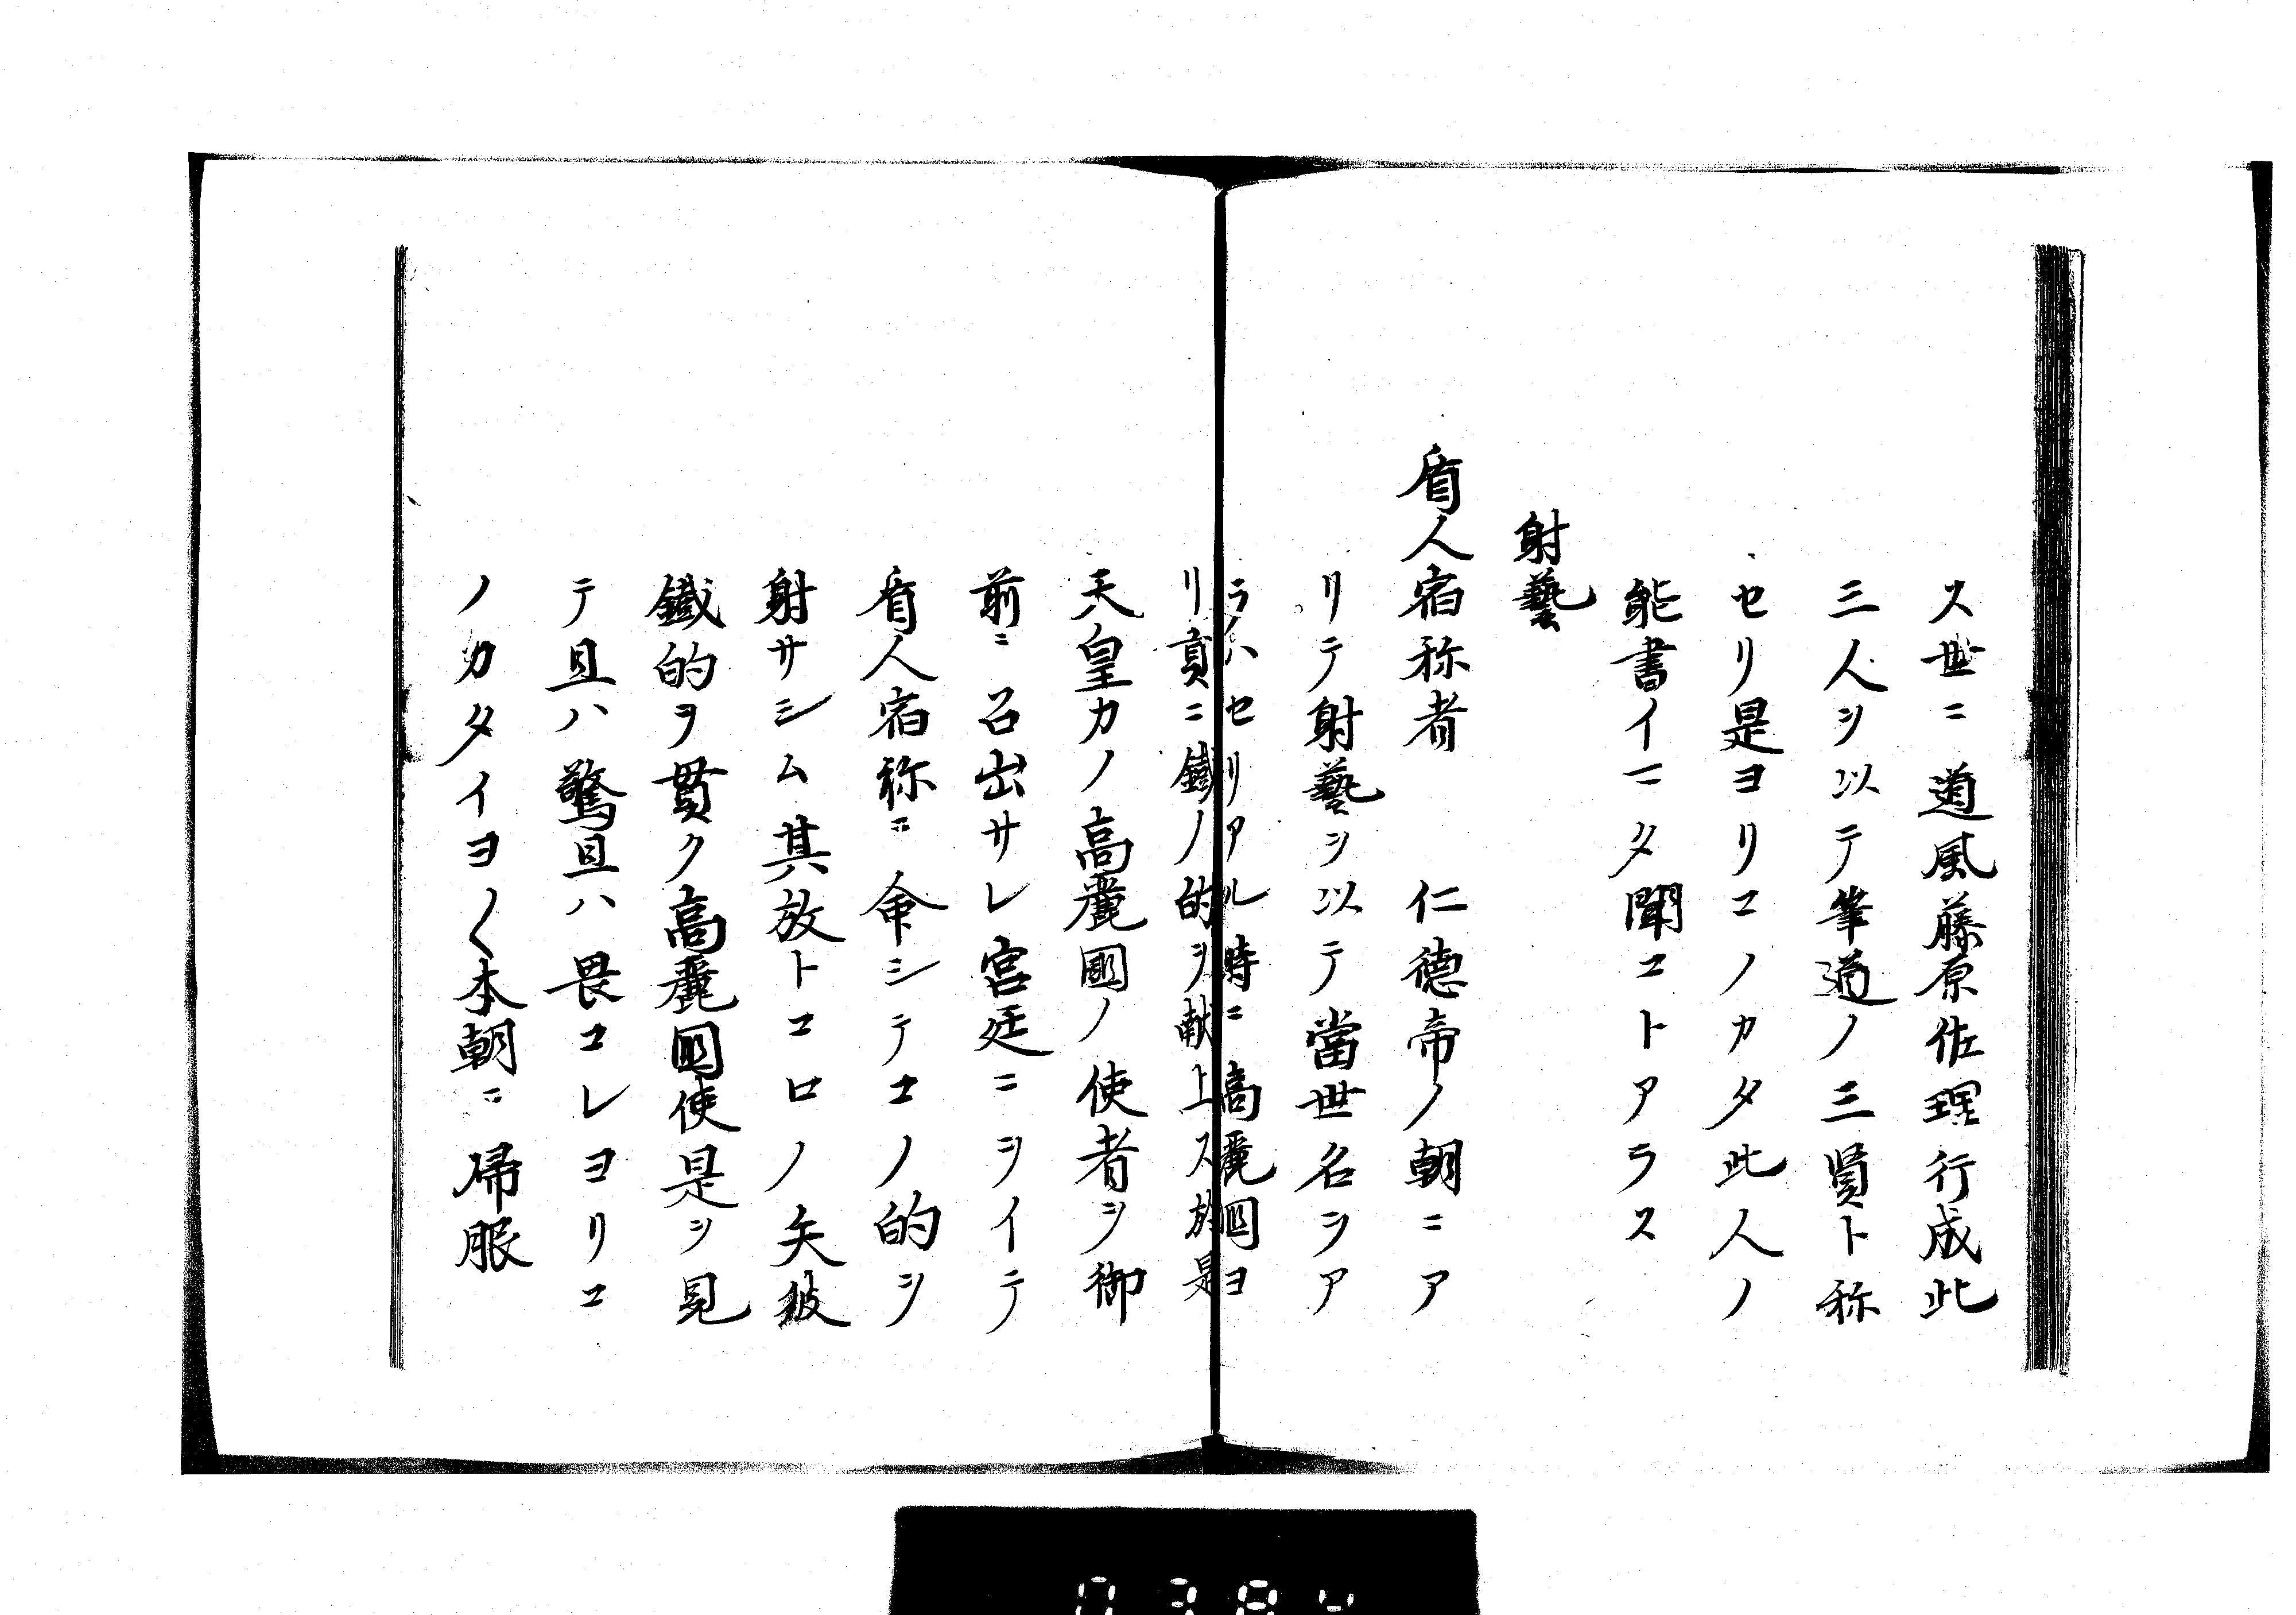 ス世ニ道風藤原佐理行成此
三人ヲ以テ筆道ノ三賢ト称
セリ是ヨリコノカタ此人ノ
能書イマタ聞コトアラス
射藝
盾人宿祢者　仁徳帝ノ朝ニア
リテ射藝ヲ以テ當世名ヲア
ラハセリアル時ニ高麗國ヨ
リ貢ニ鐵ノ的ヲ献上ス於是
天皇カノ高麗國ノ使者ヲ御
前ニ召出サレ宮廷ニヲイテ
盾人宿祢ニ命シテコノ的ヲ
射サシム其放トコロノ矢彼
鐵的ヲ貫ク高麗國使是ヲ見
テ且ハ驚且ハ畏コレヨリコ
ノカタイヨ〱本朝ニ帰服